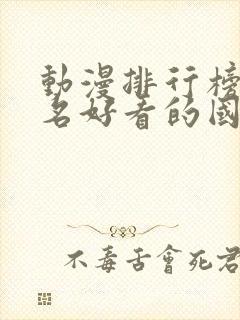 動漫排行榜
名好看的國
不毒舌會死君